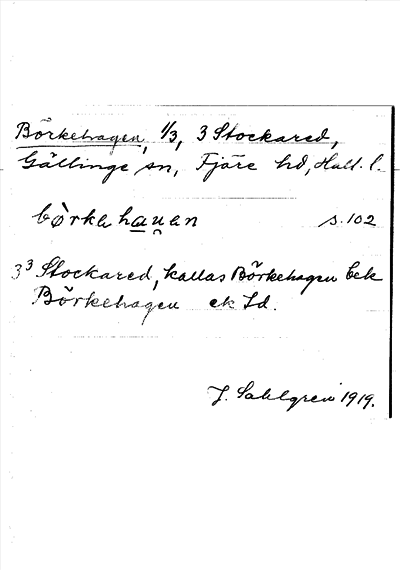 Börkehagen, 1/3, 3 Stockared,
Gällinge sn, Fjäre hd, Hall. l.
bòrkahau̯an s. 102
3³ Stockared, kallas Börkehagen bek
Börkehagen ek Jd.
J. Sahlgren 1919.